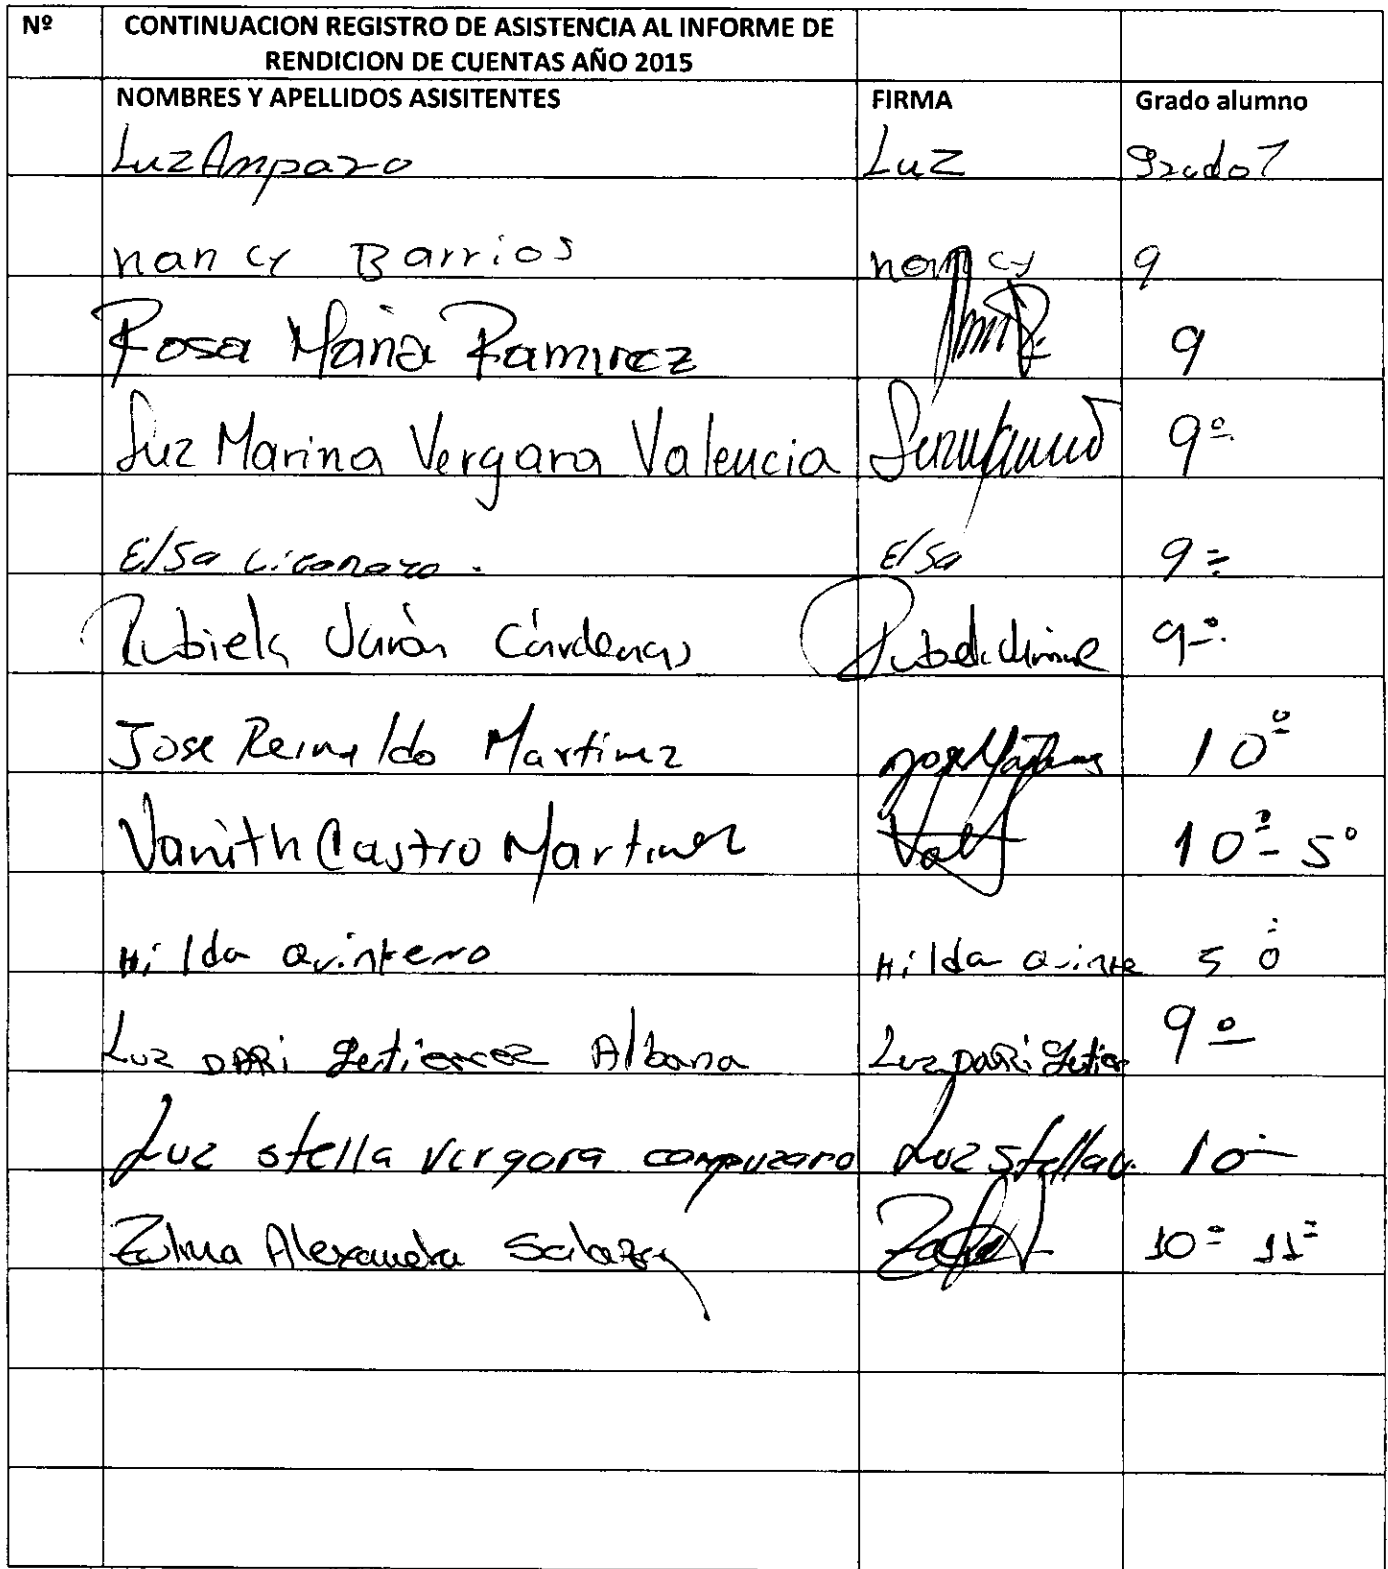 Nº CONTINUACION REGISTRO DE ASISTENCIA AL INFORME DE
RENDICION DE CUENTAS AÑO 2015
NOMBRES Y APELLIDOS ASISITENTES FIRMA Grado alumno
Luz Amparo Luz Grado 7
nancy Barrios nancy 9
Rosa Maria Ramirez 9
Luz Marina Vergara Valencia 9º
Elsa Elsa 9º
Rubiela Cárdenas 9º
Jose Reinaldo Martinez 10º
Vanith Castro Martinez 10º 5º
Hilda Quintero Hilda Quinte 5º
Luz DARi Albana Luz DARi 9º
Luz stella Vergara Luz stella v. 10
Zulma Alexandra Salazar 10º 11º